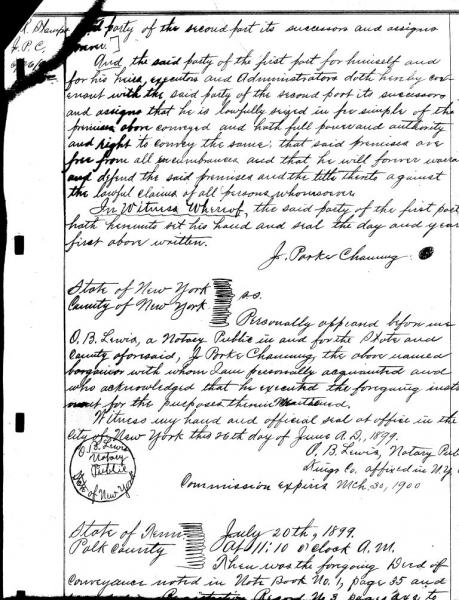 party of the second part its successors and assigns
forever.]
And the said party of the first part for himself and
for his heirs, executors and Administrators doth hereby cov-
enant with the said party of the second part its successors
and assigns that he is lawfully seized in fee simple of the
premises above conveyed and hath full power and authority
and right to convey the same; that said premises are
free from all encumbrances and that he will forever warra
and defend the said premises and the title thereto against
the lawful claims of all persons whomsoever.
In Witness Whereof, the said party of the first part
hath hereunto set his hand and seal the day and year
first above written.
J. Parke Channing
State of New York
County of New York
ss.
Personally appeared before me
O. B. Lewis, a Notary Public in and for the State and
County aforesaid, J Parke Channing, the above named
bargainor with whom I am personally acquainted and
who acknowledged that he executed the foregoing instr
ment for the purposes therein
Witness my hand and official seal at office in the
City of New York this 26th day of June A.D, 1899.
O. B. Lewis, Notary Pub
Kings Co. affixed in N.Y.
O. B. Lewis
Notary
Public
State of New York
Commission expires Mch. 30, 1900
State of Tenn.
Polk County
July 20th, 1899.
At 11:10 o'clock A.M.
Then was the foregoing Deed of
Conveyance noted in Note Book No. 1, page 35 and
Record No 3 pages 242 to